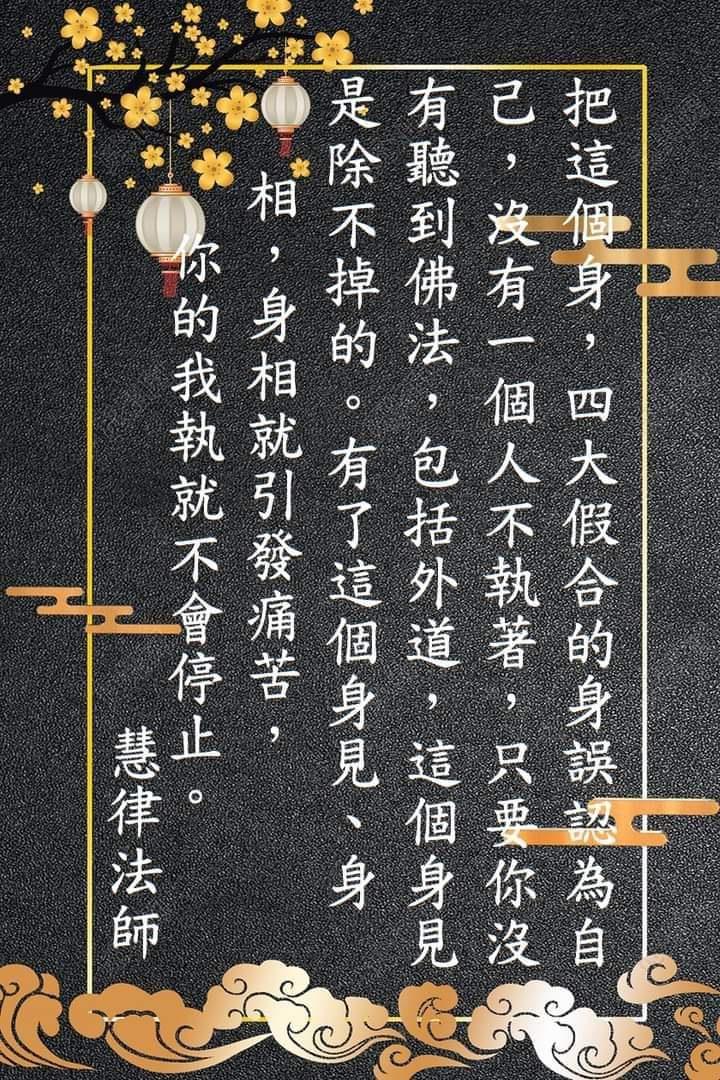 把這個身，四大假合的身誤認為自
己，沒有一個人不執著，只要你沒
有聽到佛法，包括外道，這個身見
是除不掉的。有了這個身見、身
相，身相就引發痛苦，
你的我執就不會停止。
慧律法師